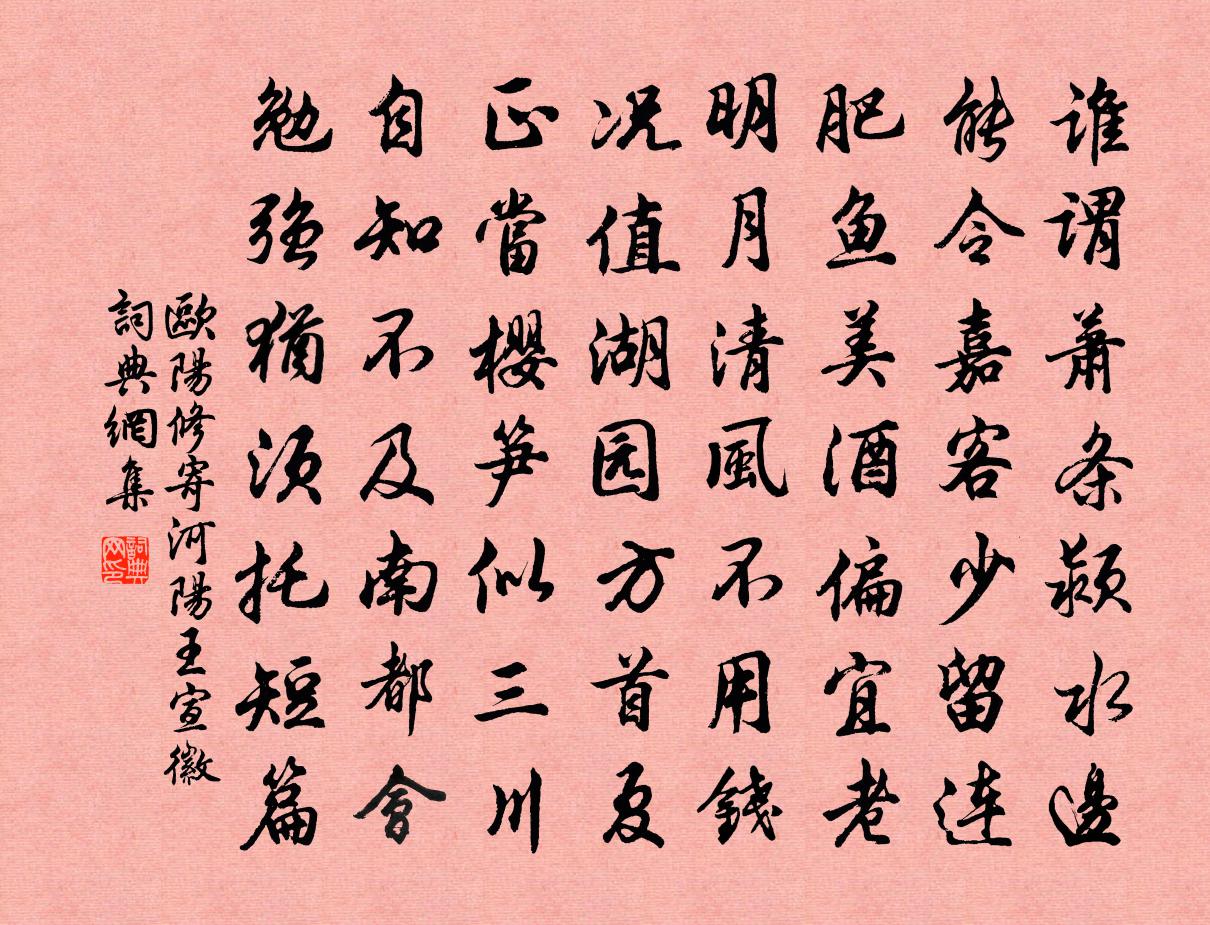 誰謂蕭条潁水邊
能令嘉客少留連
肥鱼美酒偏宜老
明月清風不用錢
况值湖园方首夏
正當櫻笋似三川
自知不及南都會
勉强猶須托短篇
歐陽修寄河陽王宣徽
詞典網集
詞典网印